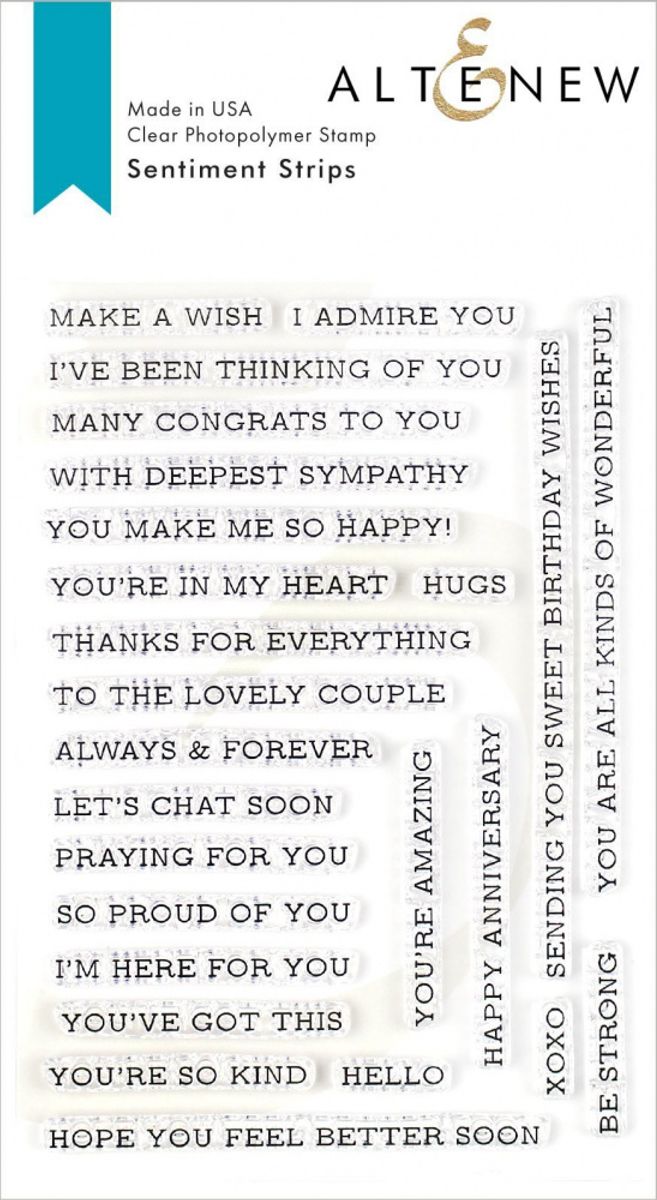 ALTENEW
Made in USA
Clear Photopolymer Stamp
Sentiment Strips
MAKE A WISH
I ADMIRE YOU
I'VE BEEN THINKING OF YOU
MANY CONGRATS TO YOU
WITH DEEPEST SYMPATHY
YOU MAKE ME SO HAPPY!
YOU'RE IN MY HEART
HUGS
THANKS FOR EVERYTHING
TO THE LOVELY COUPLE
ALWAYS & FOREVER
LET'S CHAT SOON
PRAYING FOR YOU
SO PROUD OF YOU
I'M HERE FOR YOU
YOU'VE GOT THIS
YOU'RE SO KIND
HELLO
HOPE YOU FEEL BETTER SOON
YOU'RE AMAZING
HAPPY ANNIVERSARY
SENDING YOU SWEET BIRTHDAY WISHES
XOXO
YOU ARE ALL KINDS OF WONDERFUL
BE STRONG